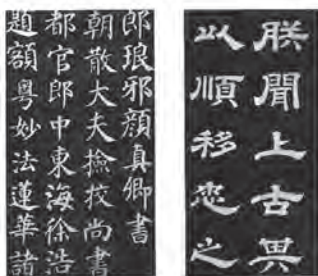 郎琅邪顔真卿書
朝散大夫撿挍尚書
都官郎中東海徐浩
題額粤妙法蓮華諸
朕聞上古其
以順移忠之